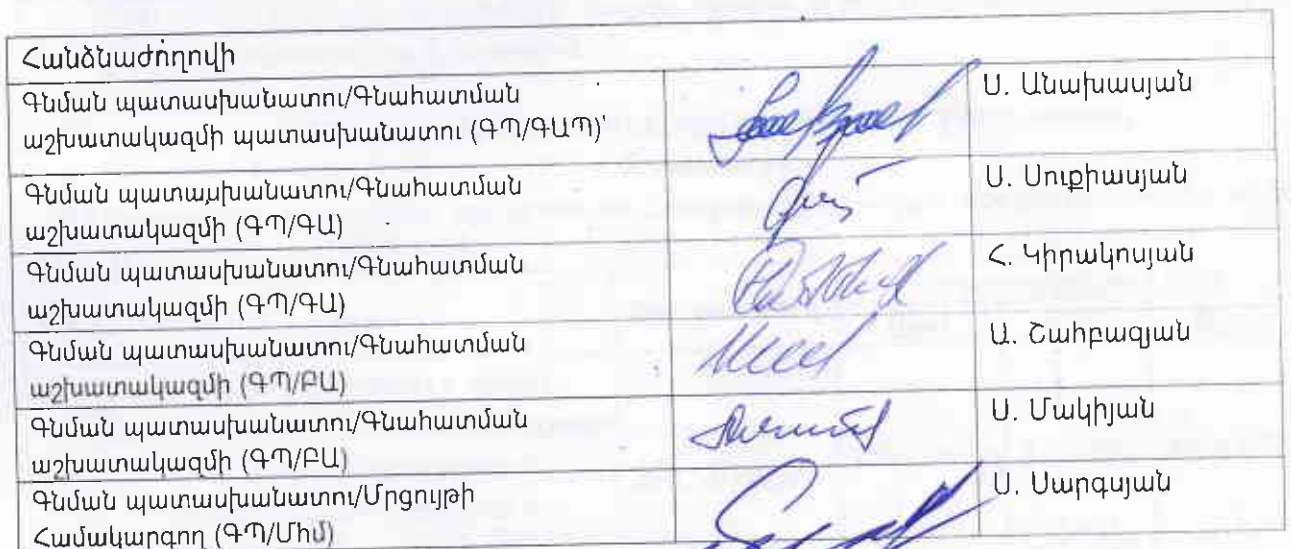 Հանձնաժողովի
Գնման պատասխանատու/Գնահատման
աշխատակազմի պատասխանատու (ԳՊ/ԳԱՊ)՝
Ս. Անախասյան
Գնման պատասխանատու/Գնահատման
աշխատակազմի (ԳՊ/ԳԱ)
Ս. Սուքիասյան
Գնման պատասխանատու/Գնահատման
աշխատակազմի (ԳՊ/ԳԱ)
Հ. Կիրակոսյան
Գնման պատասխանատու/Գնահատման
աշխատակազմի (ԳՊ/ԲԱ)
Ա. Շահբազյան
Գնման պատասխանատու/Գնահատման
աշխատակազմի (ԳՊ/ԲԱ)
Ս. Մակիյան
Գնման պատասխանատու/Մրցույթի
Համակարգող (ԳՊ/Միմ)
Ս. Սարգսյան